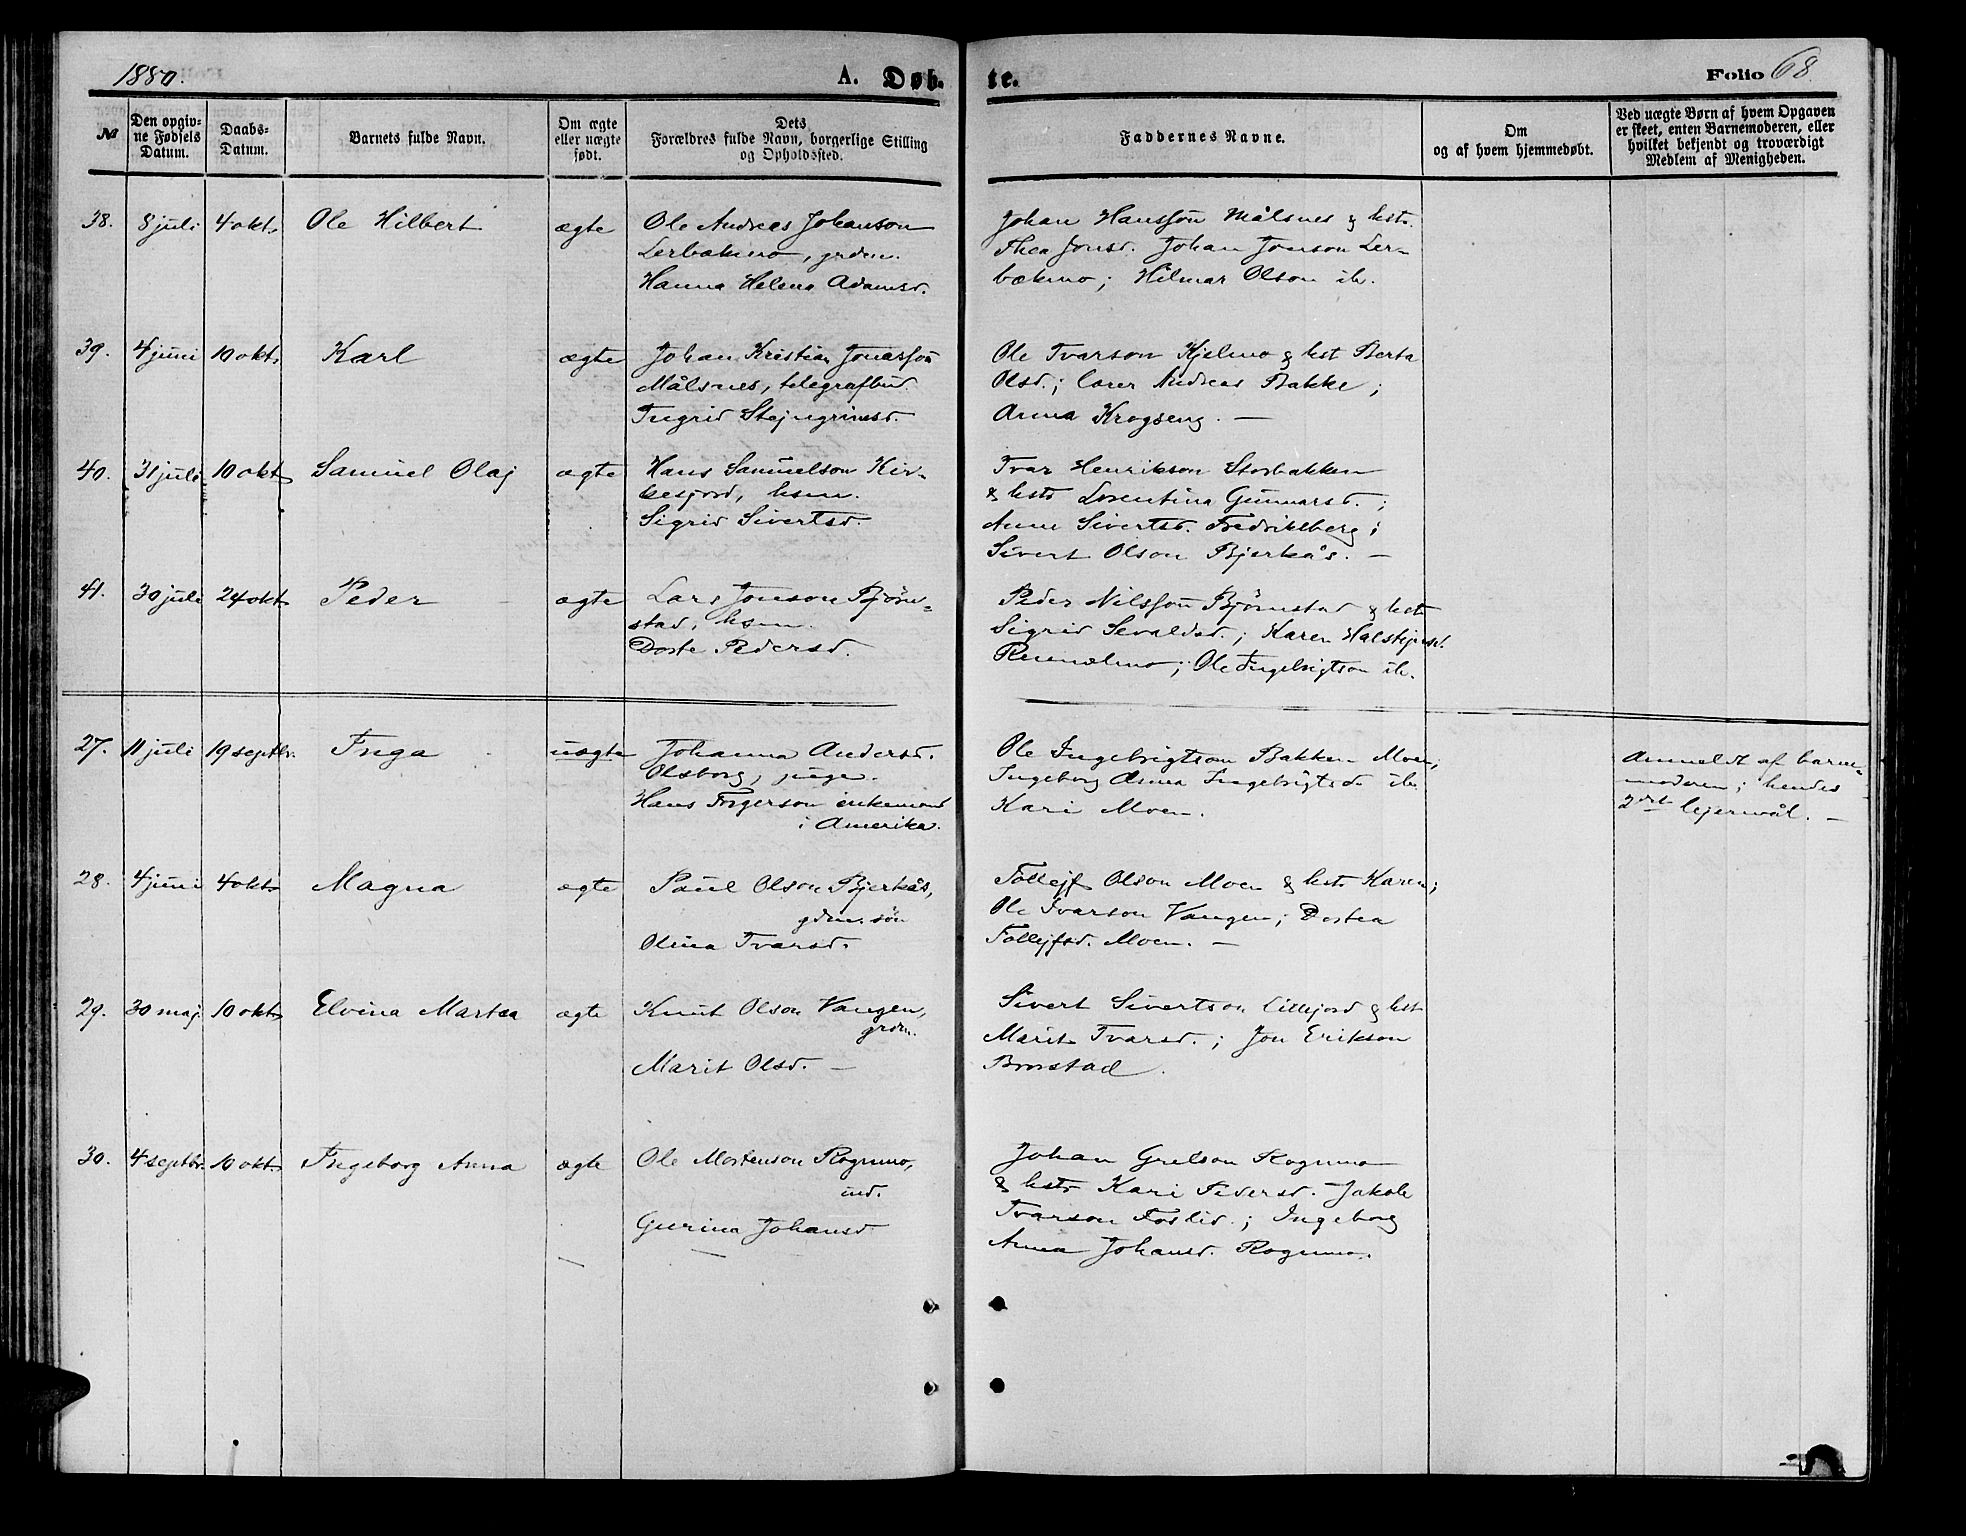 1880.
A. Døb-
te.
Folio 68
№
Den opgiv-
ne Fødsels
Datum.
Daabs-
Datum.
Barnets fulde Navn.
Om ægte
eller uægte
født.
Dets
Forældres fulde Navn, borgerlige Stilling
og Opholdssted.
Faddernes Navne.
Om
og af hvem hjemmedøbt.
Ved uægte Børn af hvem Opgaven
er skeet, enten Barnemoderen, eller
hvilket bekjendt og troværdigt
Medlem af Menigheden.
38. 8 juli 4 okt. Ole Hilbert ægte
Ole Andreas Johanson
Lerbækmo, grdm.
Hanna Helena Adamsd.
Johan Hansson Målsnes & kst.
Thea Jonsd. Johan Jonson Ler-
bækmo; Hilmar Olson ib.
39. 4 juni 10 okt. Karl ægte
Johan Kristian Jonasson
Målsnes, telegrafbud.
Ingrid Stejngrimsd.
Ole Ivarson Kjelmo & kst Berta
Olsd.; lærer Andreas Bakke;
Anna Krogseng. —
40. 31 juli 10 okt Samuel Olaj ægte
Hans Samuelson Kir-
kesjord, hsm.
Sigrid Sivertsd.
Ivar Henrikson Storbakken
& kst. Lorentina Gunnarsd.;
Anne Sivertsd. Fredrikberg;
Sivert Olson Bjerkås. —
41. 30 juli 24 okt Peder ægte
Lars Jonson Bjørn-
stad, hsm.
Dorte Pedersd.
Peder Nilsson Bjørnstad & kst
Sigrid Sevaldsd.; Karen Halstejnsd.
; Ole Ingebrigtson ib.
27. 11 juli 19 septbr. Inga uægte
Johanna Andersd.
Olsborg, pige.
Hans enkemand
i Amerika.
Ole Ingebrigtson Bakken Moen,
Ingeborg Anna Ingebrigtsd. ib
Kari Moen.
Anmeldt af barne-
moderen; hendes
2det lejermål. —
28. 4 juni 4 okt Magna ægte
Paul Olson Bjerkås,
gdm. søn
Olina Ivarsd.
Tollejf Olson Moen & kst. Karen;
Ole Ivarson Vangen; Dortea
Tollejfsd. Moen. —
29. 30 maj 10 okt. Elvina Martea ægte
Knut Olson Vangen,
grdm.
Marit Olsd. —
Sivert Sivertson Lillejord & kst
Marit Ivarsd.; Jon Erikson
Brostad.
30. 4 septbr. 10 okt. Ingeborg Anna ægte
Ole Mortenson Rognmo,
ind.
Gurina Johansd
—
Johan Grelson Rognmo
& kst. Kari Pedersd. Jakob
Ivarson Foslid.; Ingeborg
Anna Johansd. Rognmo.